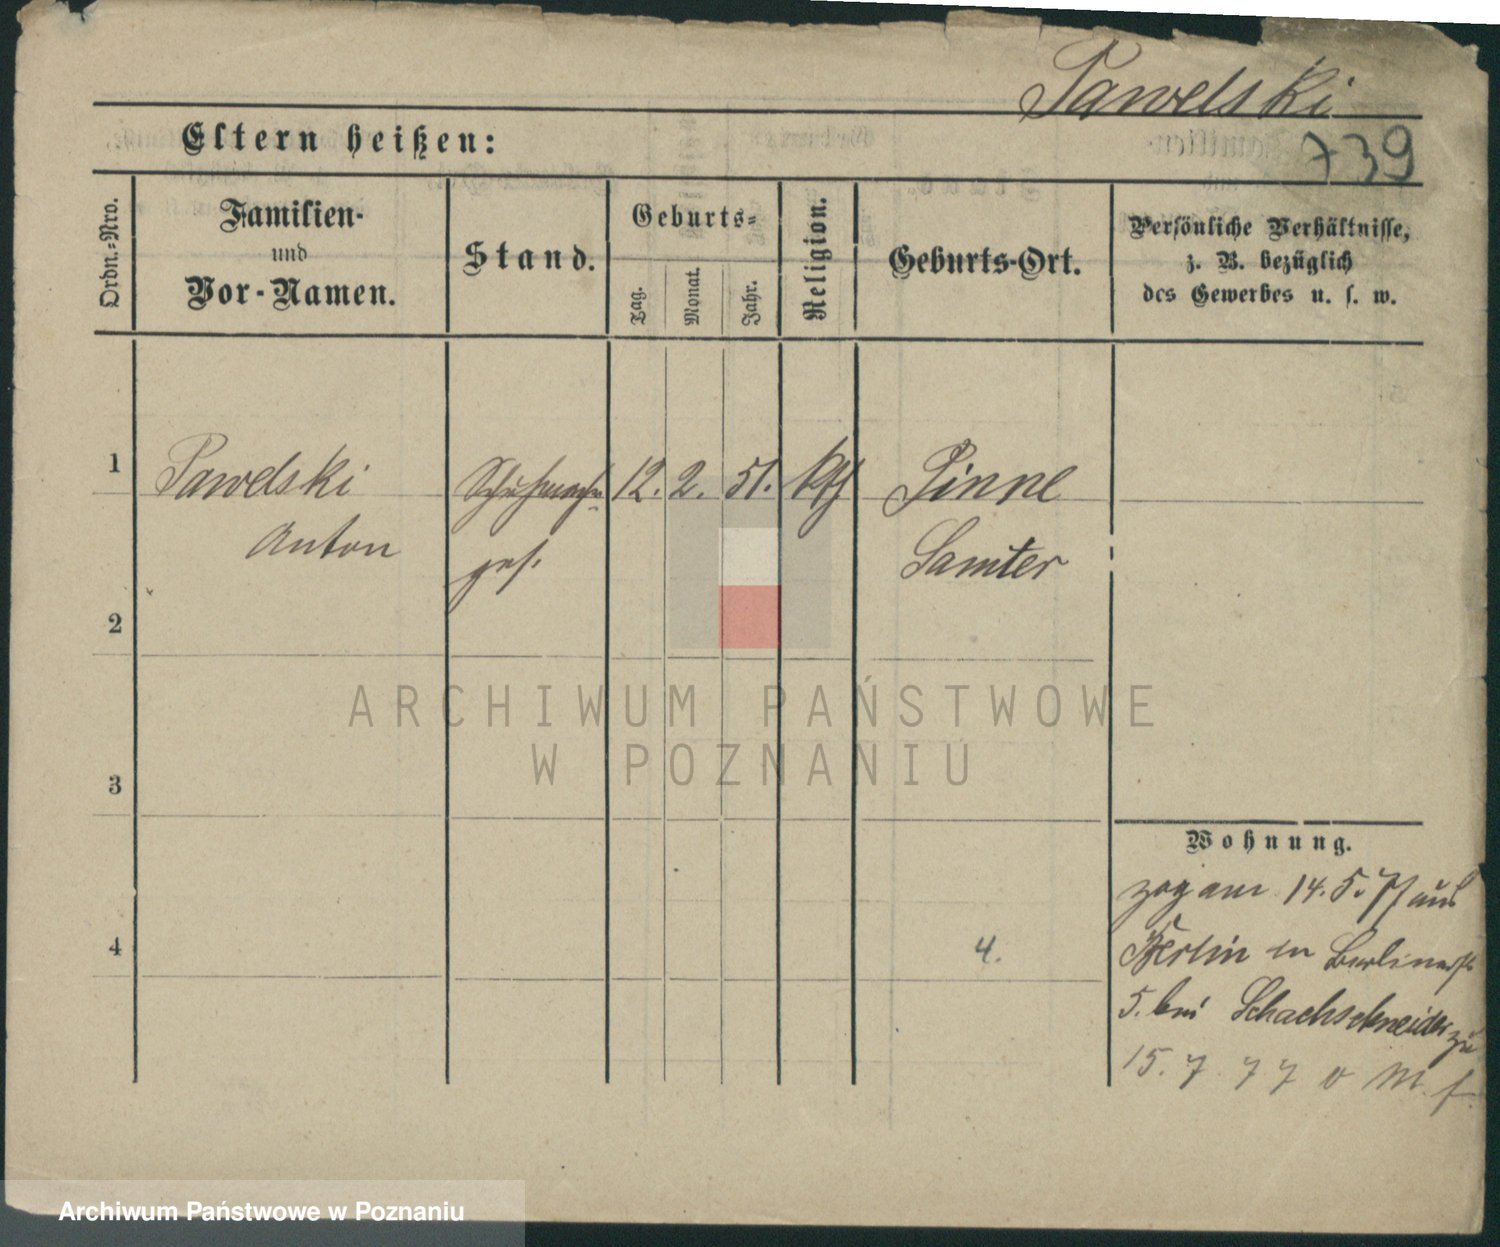 Pawelski
739
Eltern heißen:
Ordn.-Nro.
Familien-
und
Vor-Namen.
Stand.
Geburts-
Tag.
Monat.
Jahr.
Religion.
Geburts-Ort.
Persönliche Verhältnisse,
z. B. bezüglich
des Gewerbes u. s. w.
1 Pawelski Schuhmach 12. 2. 51. kth Pinne
Anton ges. Samter
2
3
ARCHIWUM PAŃSTWOWE
W POZNANIU
Wohnung.
zog am 14. 5. 77 aus
4 4. Berlin in Berlinerst
5. bei Schachschneider zu
15. 7. 77 o M. f.
Archiwum Państwowe w Poznaniu